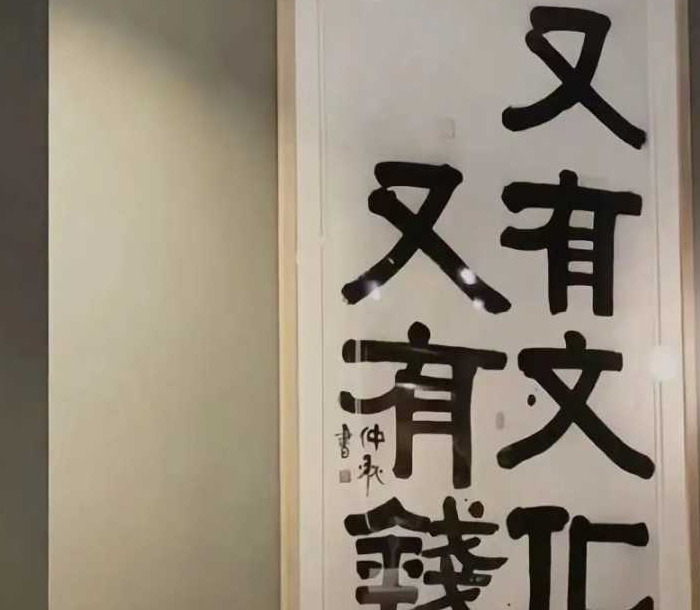 又有文化
又有錢
仲
書